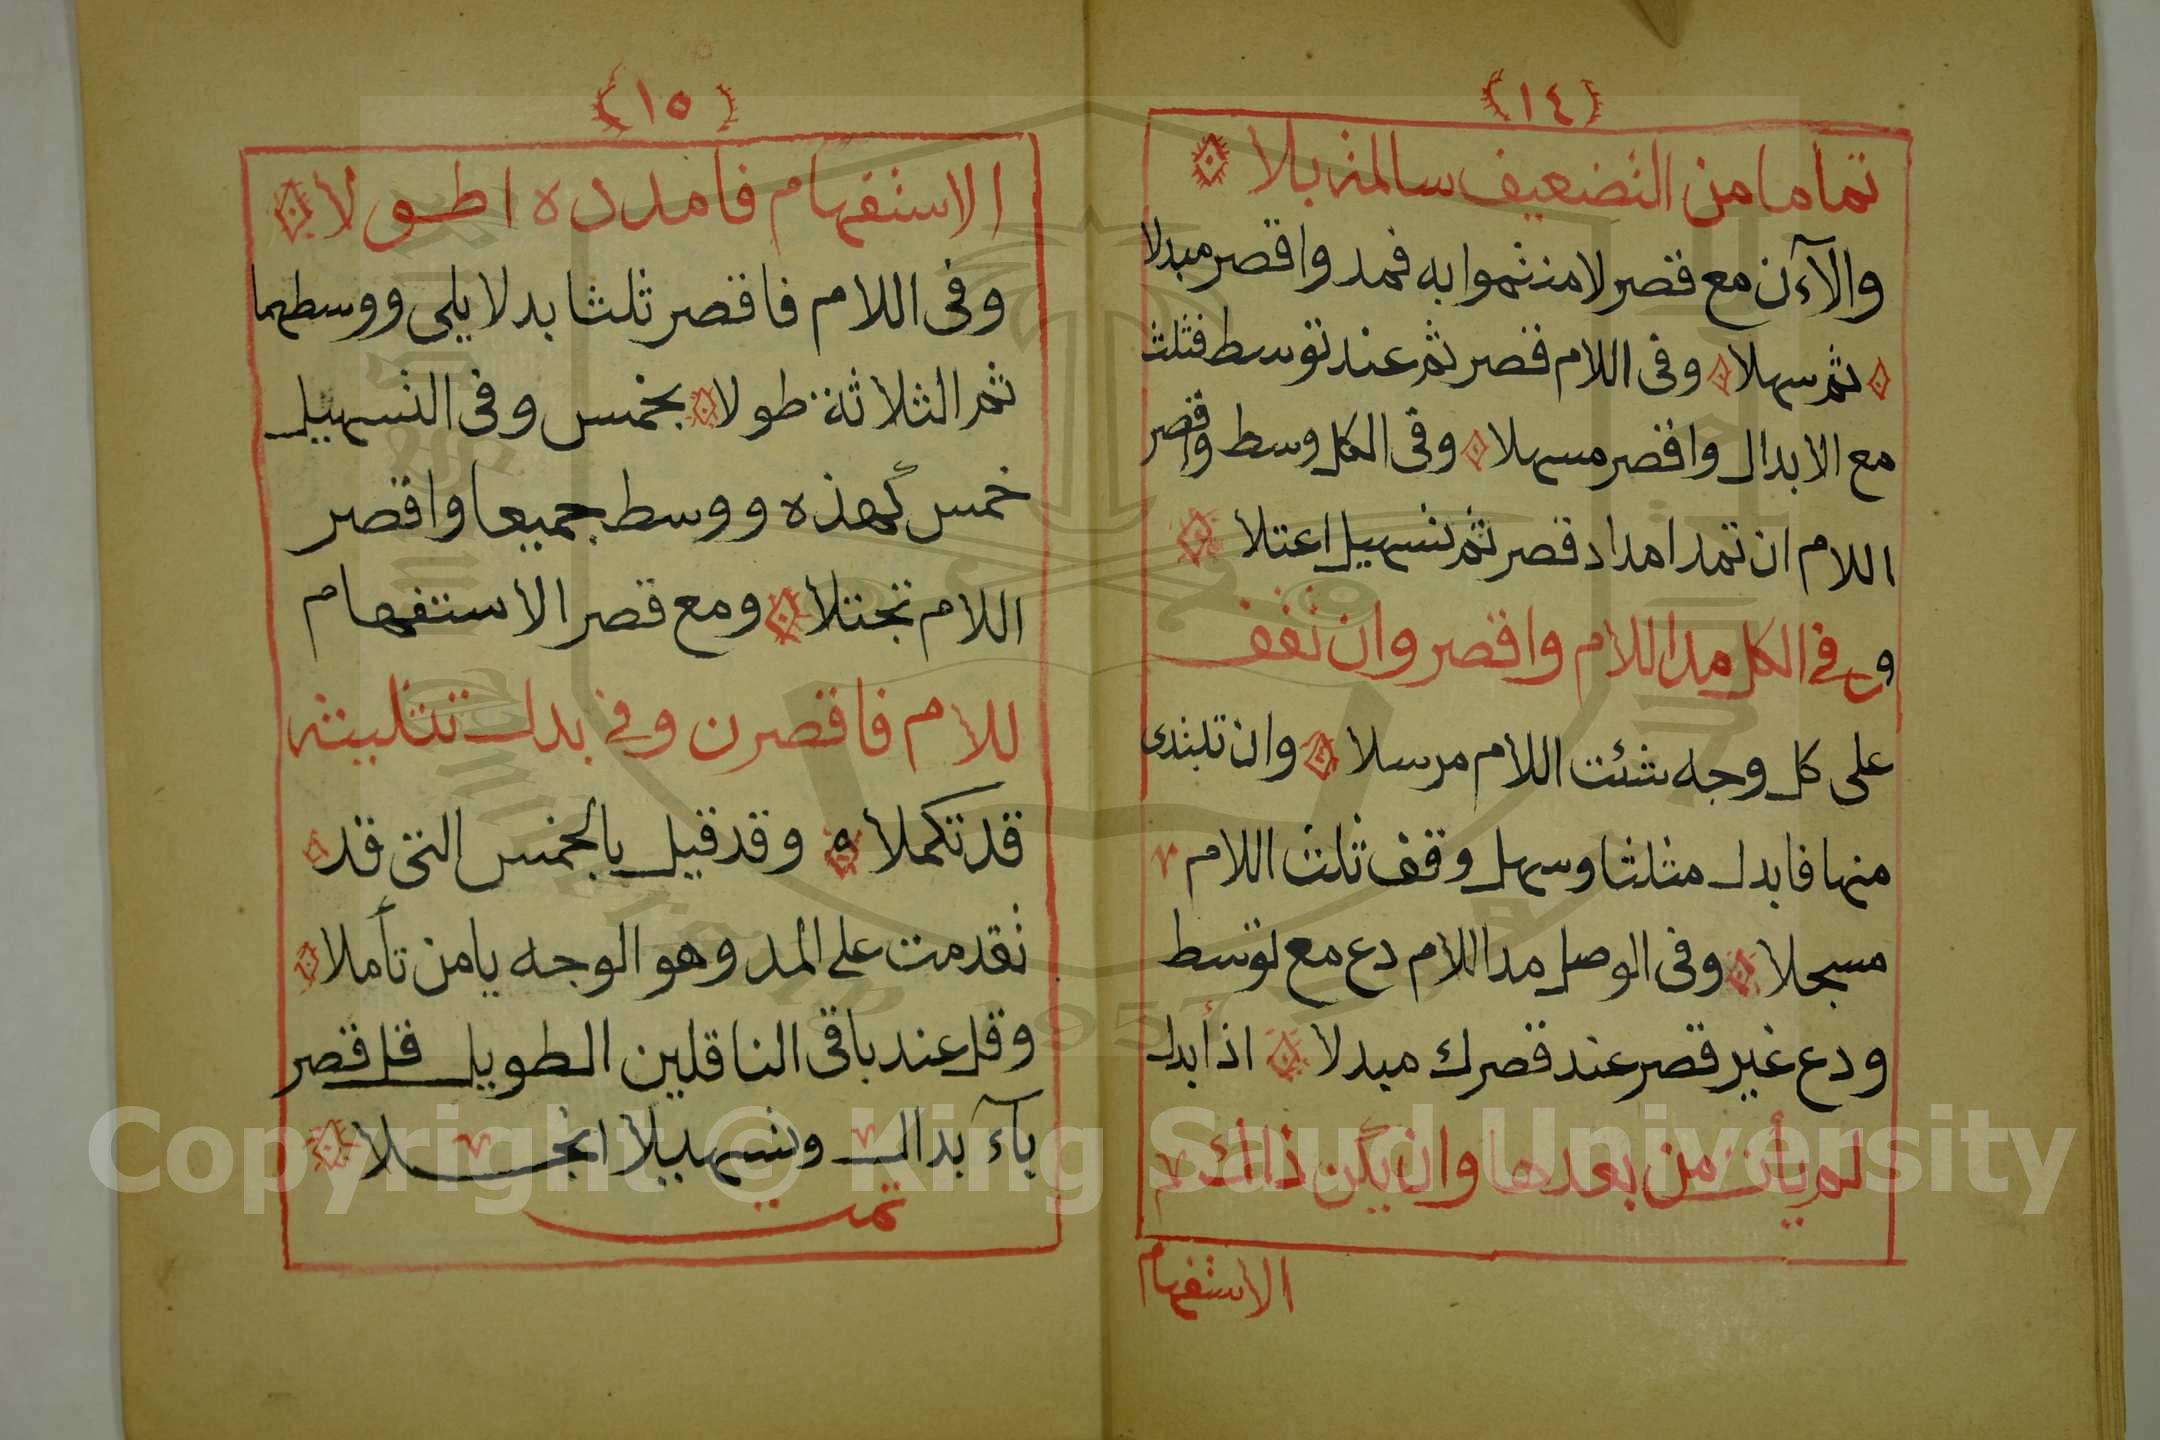 (١٤)
تماما من التضعيف سالمة بلا
والآءن مع قصر لامنثموا به فمد واقصر مبدلا
ثم سهلا وفى اللام قصر ثم عند توسط فثلث
مع الابدال واقصر مسهلا وفى الكل وسط واقصر
اللام ان تمد امداد قصر ثم تسهيل اعتلا
وفي الكل مد اللام واقصر وان تقف
على كل وجه شئت اللام مرسلا وان تبتدى
منها فابدل مثلثا وسهل وقف ثلث اللام
مسجلا وفى الوصل مد اللام دع مع توسط
ودع غير قصر عند قصرك مبدلا اذ أبدل
لم يأت من بعدها وان يكن ذلك
الاستفهام
(١٥)
الاستفهام فامدده اطولا
وفى اللام فاقصر ثلثا بدلا يلى ووسطهما
ثم الثلاثة طولا بخمس وفى التسهيل
خمس كهذه ووسط جميعا واقصر
اللام تجتلا ومع قصر الاستفهام
للام فاقصرن وفي بدل تثليثه
قد تكملا وقد قيل بالخمس التى قد
تقدمت على المد وهو الوجه يا من تأملا
وقل عند باقى الناقلين الطويل قل قصر
بآء بدال وتسهيلا انجلا
تمت
Copyright © King Saud University
1957